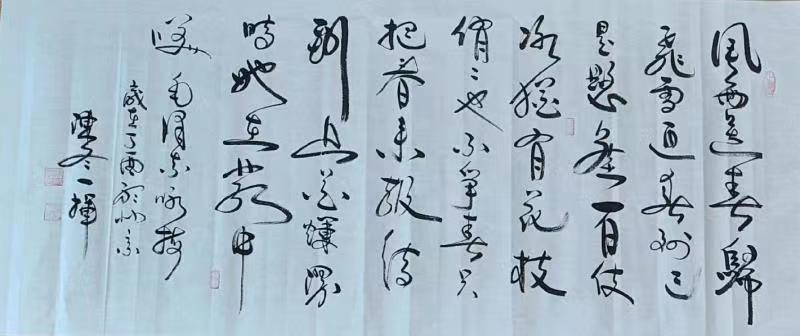 風雨送春歸
飛雪迎春到已
是懸崖百丈
冰猶有花枝
俏俏也不爭春只
把春来報待
到山花爛漫
時她在叢中
笑 毛澤東咏梅
歲在丁酉於北京
陳冬一揮